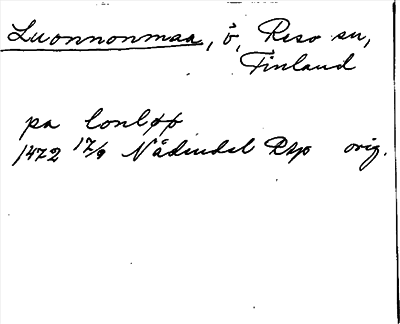 Luonnonmaa, ö, Reso sn,
Finland
pa lonløp
1472 17/9 Nådendal Rsp orig.